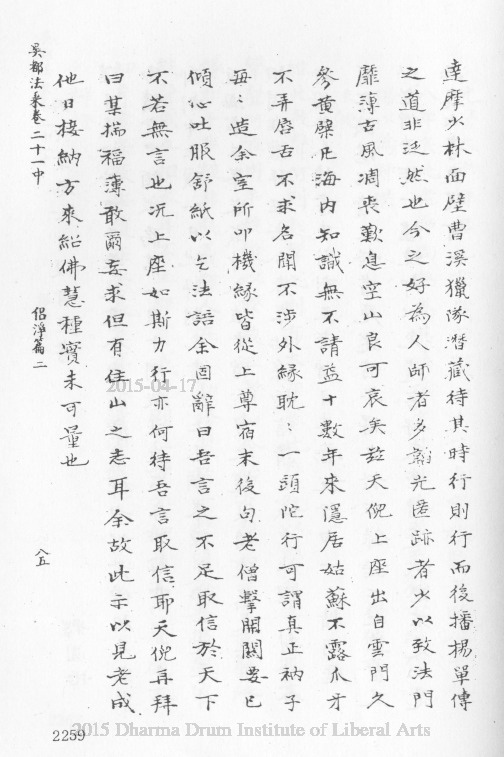 達摩少林面壁曹溪獵隊潛藏待其時行則行而後播揚單傳
之道非泛然也今之好為人師者多韜光匿跡者少以致法門
靡薄古風凋喪歎息空山良可哀矣茲天倪上座出自雲門久
參黃檗凡海內知識無不請益十數年來隱居姑蘇不露爪牙
不弄唇舌不求名聞不涉外緣耽〻一頭陀行可謂真正衲子
每〻造余室所叩機緣皆從上尊宿末後句老僧擊開關要已
傾心吐服舒紙以乞法語余固辭曰吾言之不足取信於天下
不若無言也況上座如斯力行亦何待吾言取信耶天倪再拜
曰某揣福薄敢爾妄求但有住山之志耳余故此示以見老成
他日接納方來紹佛慧種實未可量也
吳都法乘卷二十一中
侶淨篇二
八五
2259
2015-04-17
2015 Dharma Drum Institute of Liberal Arts